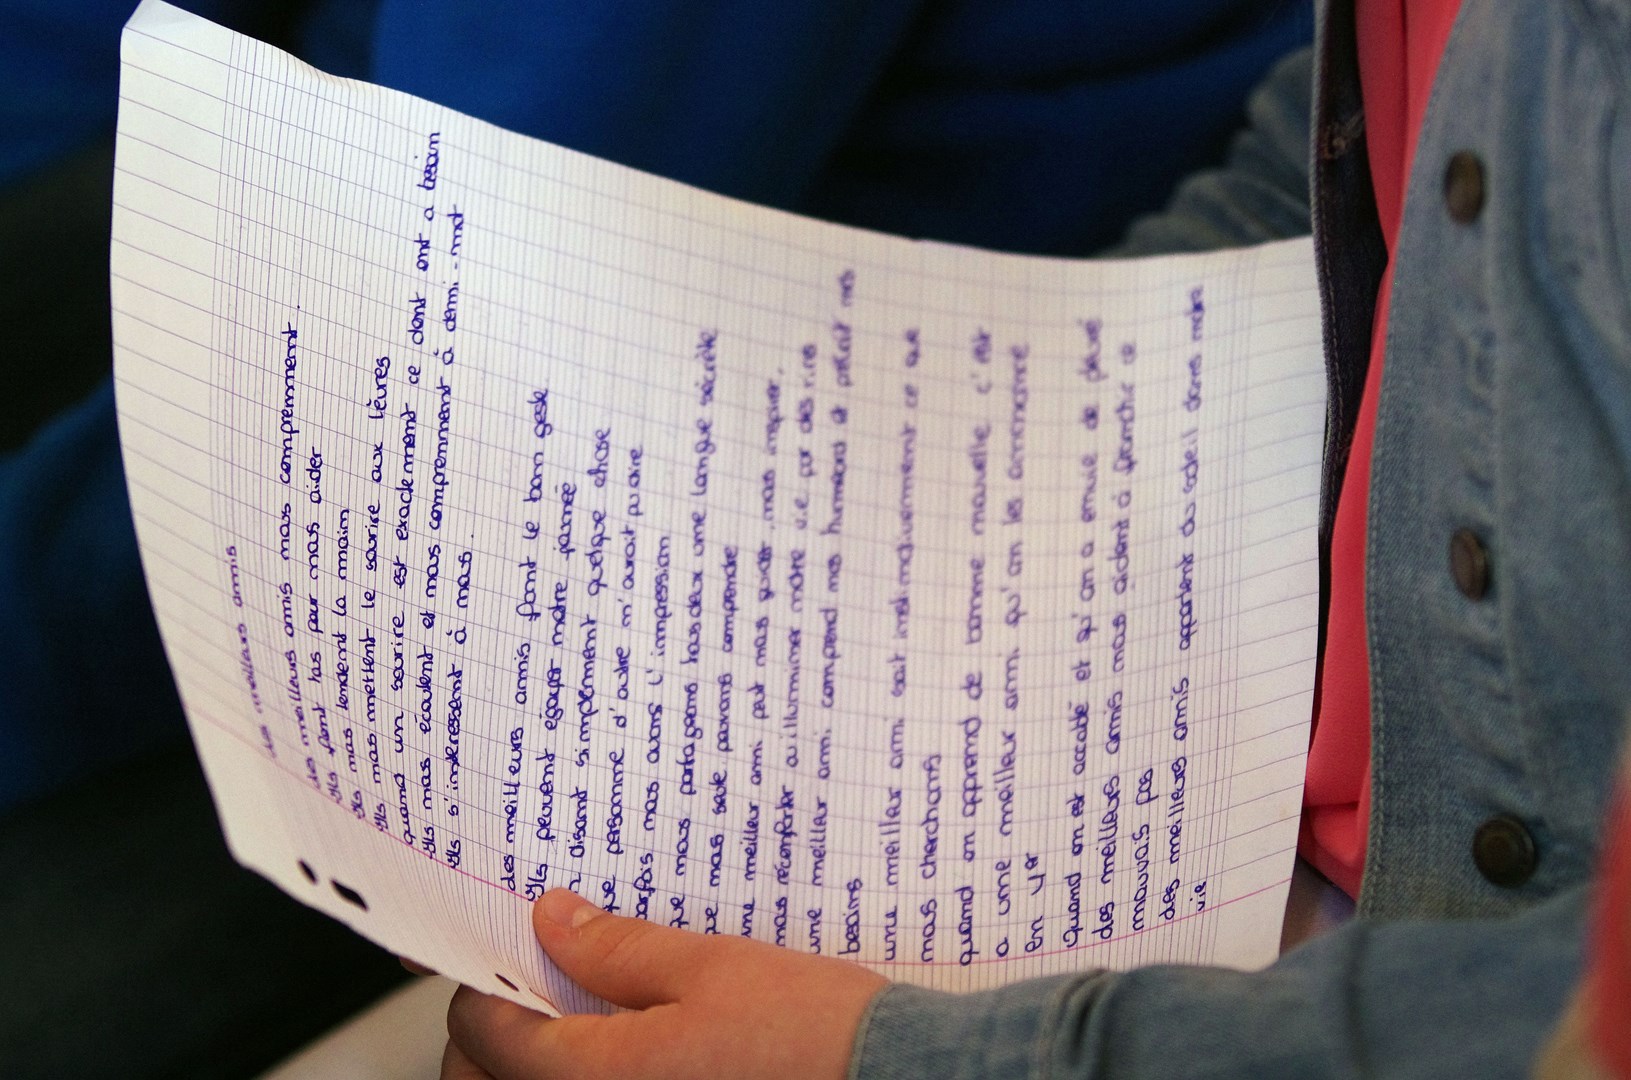 des meilleurs amis
des meilleurs amis nous comprennent.
Ils font tous pour nous aider
Ils nous tendent la main
Ils nous mettent le sourire aux lèvres
quand un sourire est exactement ce dont ont a besoin
Ils nous écoutent et nous comprennent à demi-mot
Ils s'interessent à nous.
des meilleurs amis font le bon geste
Ils peuvent égayer notre journée
disant simplement quelque chose
que personne d'autre n'aurait pu dire
parfois nous avons l'impression
que nous partageons tous deux une langue secrète
que nous seule pouvons comprendre
une meilleur ami peut nous guider, nous inspirer,
nous réconforter ou illuminer notre vie par des rires
une meilleur ami comprend nos humeurs et prévit nos
besoins
une meilleur ami sait instinctivement ce que
nous cherchons
quand on apprend de bonne nouvelle c'est
a une meilleur ami qu'on les annonce
en 1er
quand on est accablé et qu'on a envie de pleuré
des meilleurs amis nous aident à franchir ce
mauvais pas
des meilleurs amis apportent du soleil dans notre
vie